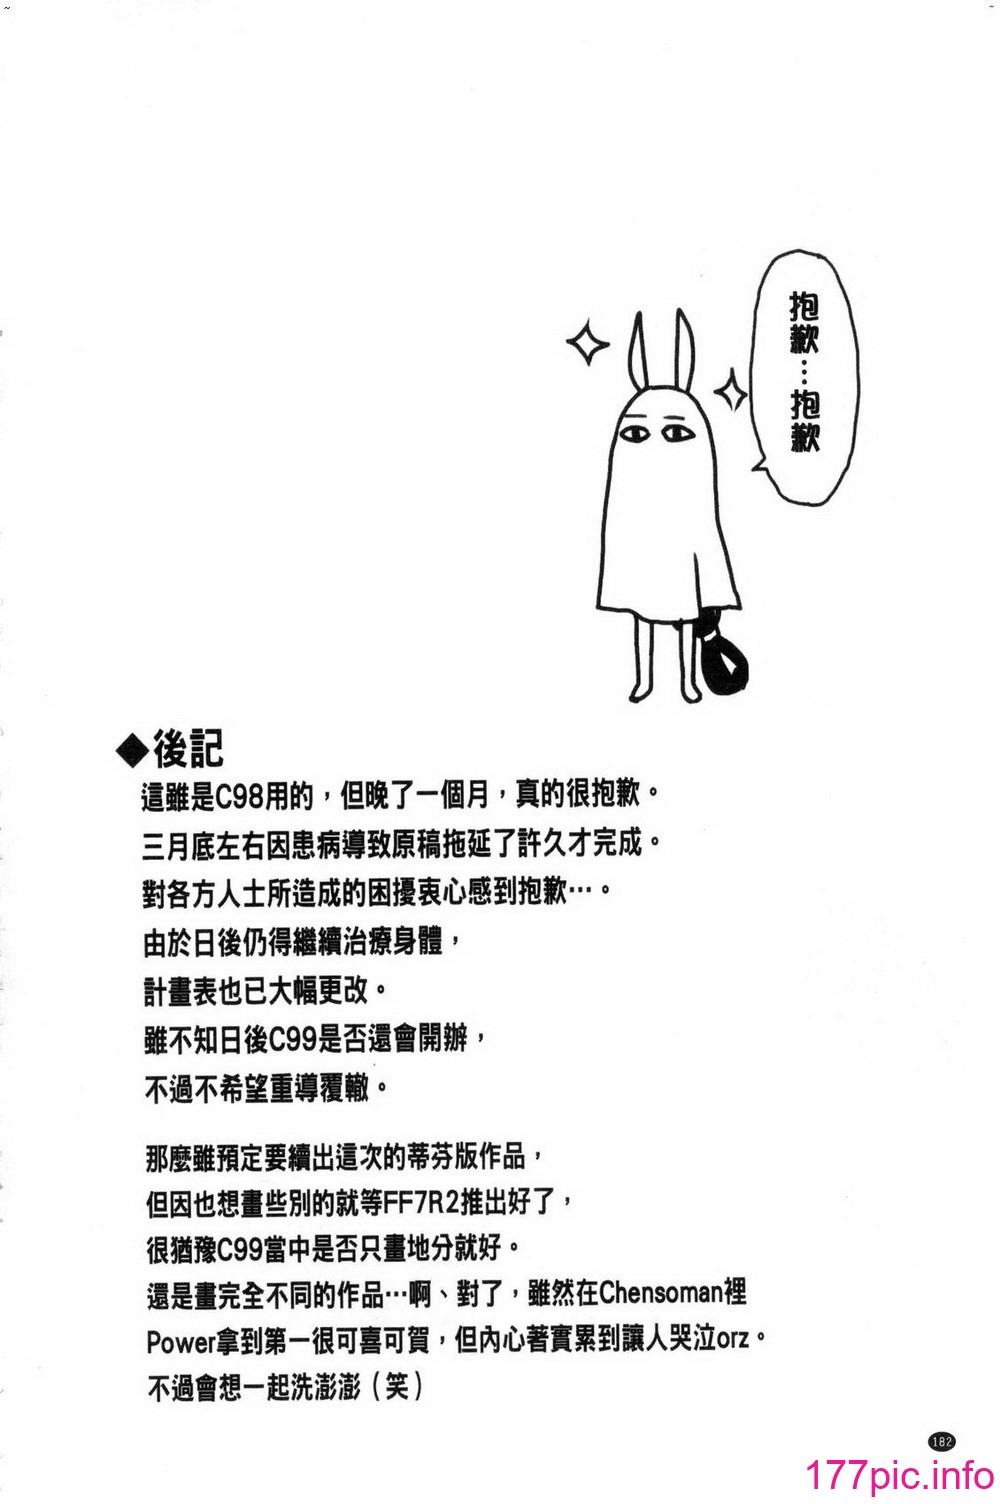 抱歉…抱歉
◆後記
這雖是C98用的，但晚了一個月，真的很抱歉。
三月底左右因患病導致原稿拖延了許久才完成。
對各方人士所造成的困擾衷心感到抱歉…。
由於日後仍得繼續治療身體，
計畫表也已大幅更改。
雖不知日後C99是否還會開辦，
不過不希望重導覆轍。
那麼雖預定要續出這次的蒂芬版作品，
但因也想畫些別的就等FF7R2推出好了，
很猶豫C99當中是否只畫地分就好。
還是畫完全不同的作品…啊、對了，雖然在Chensoman裡
Power拿到第一很可喜可賀，但內心著實累到讓人哭泣orz。
不過會想一起洗澎澎（笑）
182
177pic.info